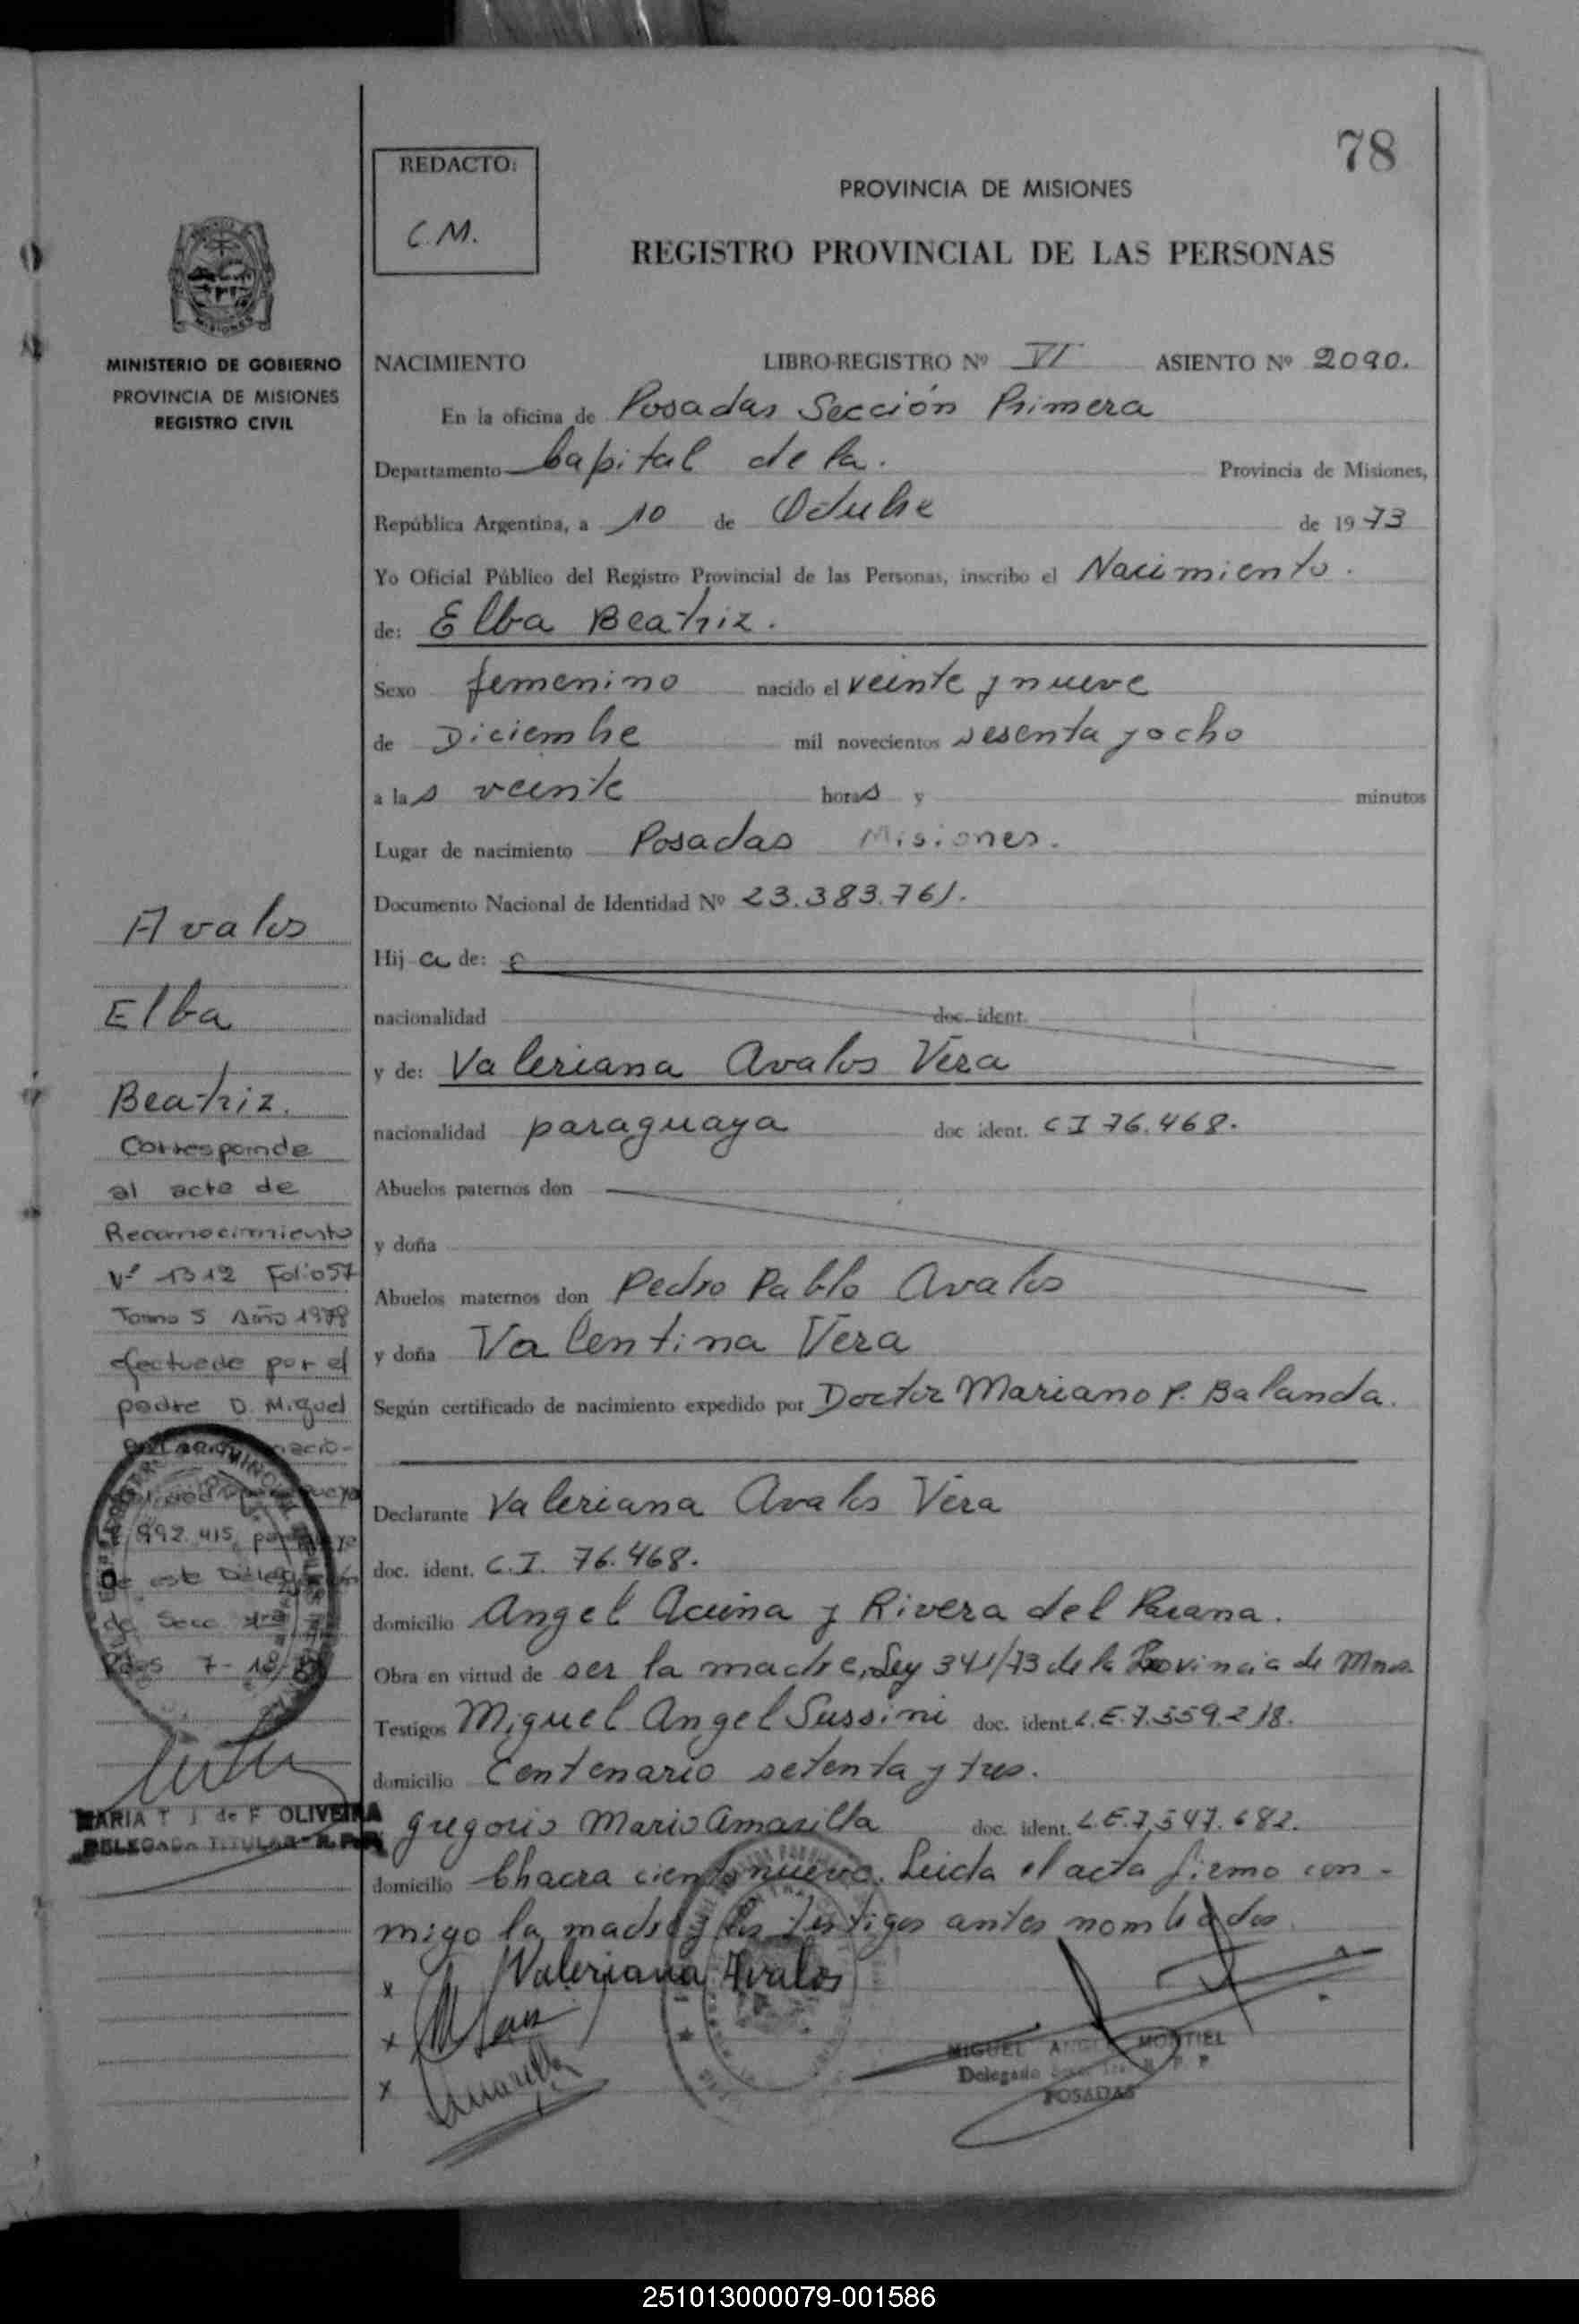 78
REDACTO:
C.M.
PROVINCIA DE MISIONES
REGISTRO PROVINCIAL DE LAS PERSONAS
MISIONES
MINISTERIO DE GOBIERNO
PROVINCIA DE MISIONES
REGISTRO CIVIL
NACIMIENTO LIBRO-REGISTRO Nº VI ASIENTO Nº 2090.
En la oficina de Posadas Sección Primera
Departamento Capital de la. Provincia de Misiones,
República Argentina, a 10 de Octubre de 1973
Yo Oficial Público del Registro Provincial de las Personas, inscribo el Nacimiento.
de: Elba Beatriz.
Sexo femenino nacido el veinte y nueve
de Diciembre mil novecientos sesenta y ocho
a las veinte horas y minutos
Lugar de nacimiento Posadas Misiones.
Documento Nacional de Identidad Nº 23.383.761.
Hija de:
nacionalidad doc. ident.
y de: Valeriana Avalos Vera
nacionalidad paraguaya doc ident. C I 76.468.
Abuelos paternos don
y doña
Abuelos maternos don Pedro Pablo Avalos
y doña Valentina Vera
Según certificado de nacimiento expedido por Doctor Mariano P. Balanda.
Declarante Valeriana Avalos Vera
doc. ident. C.I. 76.468.
domicilio Angel Acuña y Rivera del Parana.
Obra en virtud de ser la madre, Ley 341/73 de la Provincia de Mnes.
Testigos Miguel Angel Sussini doc. ident. L.E.7.559.218.
domicilio Centenario setenta y tres.
Gregorio Mario Amarilla doc. ident. L.E.7.547.682.
domicilio Chacra ciento nueve. Leida el acta firmo con-
migo la madre y los testigos antes nombrados
x Valeriana Avalos
x
x Amarilla
MIGUEL ANGEL MONTIEL
Delegado R. P. P
POSADAS
Avalos
Elba
Beatriz.
Corresponde
al acta de
Reconocimiento
Nº 1312 Folio 57
Tomo 5 Año 1978
efectuada por el
padre D. Miguel
nacio-
992.415,
de esta Delegación
de Secc 1ra
Pdas 7-
MARIA T J de F OLIVEIRA
DELEGADA TITULAR R.P.P.
251013000079-001586